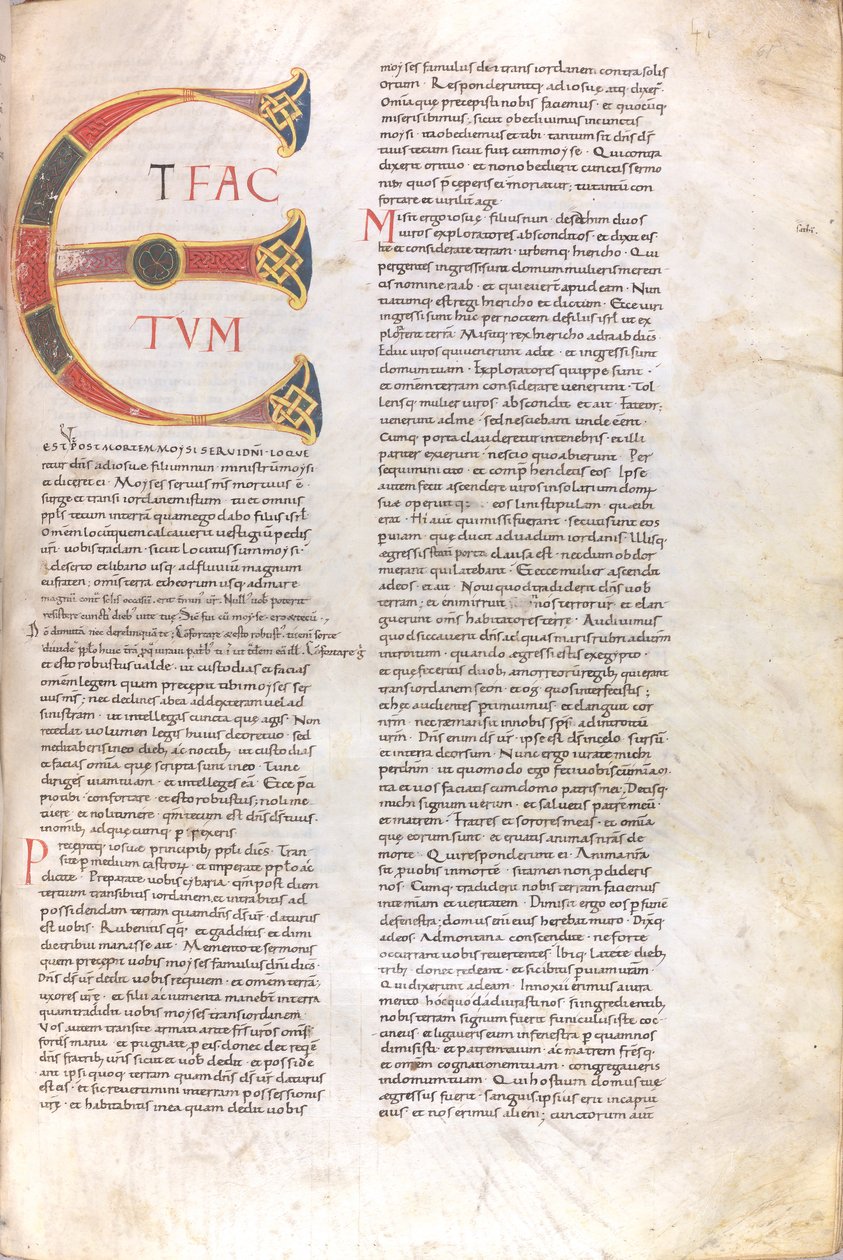 ET FAC
TVM
EST POST MORTEM MOYSI SERVI DNI · LOQUE
retur dns ad iosue filium nun · ministrum moysi
et diceret ei · Moyses servus ms mortuus ē ·
surge et transi iordanem istum · tu et omnis
ppls tecum in terrā quam ego dabo filiis isrl
Omēm locū quem calcaverit vestigiū pedis
vri · vobis tradam · sicut locutus sum moysi ·
A deserto et libano usq; ad fluvium magnum
eufraten ; omīs terra etheorum usq; ad mare
magnū contr solis occasū · erit tminus vr · Null' vob poterit
resistere cunctis dieb; vite tue · Sic fui cū moyse · ero et tecū ·
N o dimittā nec derelinquā te ; Cōfortare & esto robust' · tu eni sorte
divides pplo huic trā p qua iuravi patrib' tuis ut trderem eā ill' · Cōfortare g
et esto robustus valde · ut custodias et facias
omēm legem quam precepit tibi moyses ser
vus ms ; nec declines ab ea ad dexteram vel ad
sinistram · ut intellegas cuncta quę agis · Non
recedat volumen legis huius de ore tuo · sed
meditaberis in eo dieb; ac noctib; ut custodias
et facias omīa quę scripta sunt in eo · Tunc
diriges viam tuam · et intelleges eā · Ecce pci
pio tibi · confortare · et esto robustus ; noli me
tuere · et noli timere · qm tecum est dns ds tuus ·
in omīb; ad quecumq; prexeris
Precepitq; iosue principib; ppli dics · Tran
site p medium castrorz · et imperate pplo ac
dicite · Preparate vobis cybaria · qm post diem
tertium transibitis iordanem et intrabitis ad
possidendam terram quam dns ds vr · daturus
est vobis · Rubenitis qq; · et gadditis et dimi
die tribui manasse ait · Mementote sermonis
quem precepit vobis moyses famulus dni dics ·
Dns ds vr dedit vobis requiem · et omēm terrā ;
uxores vre · et filii ac iumenta manebunt in terra
quam tradidit vobis moyses trans iordanem ·
Vos autem transite armati ante frs vros omīs
fortes manu · et pugnate p eis · donec det requiē
dns fratrib; vris sicut et vob dedit · et posside
ant ipsi quoq; terram quam dns ds vr daturus
est eis · et sic revertimini in terram possessionis
vrę · et habitabitis in ea quam dedit vobis
moyses famulus dei trans iordanem contra solis
ortum · Responderuntq; ad iosue atq; dixer ·
Omīa que precepisti nobis faciemus · et quocūq;
miseris ibimus ; sicut obedivimus in cunctis
moysi · ita obediemus et tibi · tantum sit dns ds
tuus tecum sicut fuit cum moyse · Qui contra
dixerit ori tuo · et non obedierit cunctis sermo
nib; quos pceperis ei moriatur ; tu tantū con
fortare et virilit age ·
Misit ergo iosue · filius nun · de setthim duos
viros exploratores absconditos · et dixit eis
Ite et considerate terram · urbemq; hiericho · Qui
pergentes ingressi sunt domum mulieris meretri
cis nomine raab · et quieverunt apud eam · Nun
tiatumq; est regi hiericho et dictum · Ecce viri
ingressi sunt huc per noctem de filiis isrl ut ex
plorent terrā · Misitq; rex hiericho ad raab dics ·
Educ viros qui venerunt ad te · et ingressi sunt
domum tuam · Exploratores quippe sunt ·
et omēm terram considerare venerunt · Tol
lensq; mulier viros abscondit et ait · Fateor ;
venerunt ad me · sed nesciebam unde eent ·
Cumq; porta clauderetur in tenebris · et illi
pariter exierunt · nescio quo abierunt · Per
sequimini cito · et comphendetis eos · Ipse
autem fecit ascendere viros in solarium domus
suae operuitq; · eos lini stipulam · quae ibi
erat · Hi aut qui missi fuerant · secuti sunt eos
p viam · que ducit ad vadum iordanis · Illisq;
ęgressis statim porta clausa est · nec dum obdor
mierant qui latebant · Et ecce mulier ascendit
ad eos · et ait · Novi quod tradiderit dns vob
terram ; et enim irruit in nos terror vr · et elan
guerunt oms habitatores terre · Audivimus
quod siccaverit dns aquas maris rubri ad vrm
introitum · quando ęgressi estis ex egypto ·
et quę feceritis duob; amorreorū regib; qui erant
trans iordanem seon · et og · quos interfecistis ;
et hęc audientes ptimuimus · et elanguit cor
nrm · nec remansit in nobis sps · ad introitū
vrm · Dns enim ds vr · ipse est ds in celo · sursū ·
et in terra deorsum · Nunc ergo iurate michi
per dnm · ut quomodo ego feci vobiscum miam
ita et vos faciatis cum domo patris mei · Detisq;
michi signum verum · et salvetis patrē meū ·
et matrem · Fratres et sorores meas · et omīa
quę eorum sunt · et eruatis animas nras de
morte · Qui responderunt ei · Anima nra
sit p vobis in morte · si tamen non pdideris
nos · Cumq; tradiderit nobis terram faciemus
in te miam et veritatem · Dimisit ergo eos p funē
de fenestra ; domus eni eius herebat muro · Dixitq;
ad eos · Ad montana conscendite · ne forte
occurrant vobis revertentes · Ibiq; latete dieb;
trib; · donec redeant · et sic ibitis p viam vram ·
Qui dixerunt ad eam · Innoxii erimus a iura
mento hoc quo adiurasti nos · si ingredientib;
nobis terram signum fuerit funiculus iste coc
cineus · et ligaveris eum in fenestra p quam nos
dimisisti · et patrem tuum · ac matrem frēsq;
et omēm cognationem tuam · congregaveris
in domum tuam · Qui hostium domus tuę
ęgressus fuerit · sanguis ipsius erit in caput
eius · et nos erimus alieni ; cunctorum aut